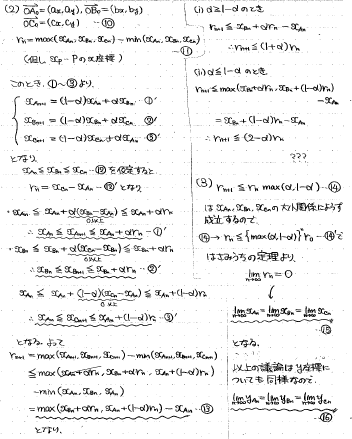 (2) OA₀ = (ax, ay), OB₀ = (bx, by)
OC₀ = (cx, cy) … ⑩
rₙ = max(x_Aₙ, x_Bₙ, x_Cₙ) − min(x_Aₙ, x_Bₙ, x_Cₙ) … ⑪
(但し x_P … Pのx座標)
このとき、①〜③より、
x_Aₙ₊₁ = (1−α)x_Aₙ + αx_Bₙ … ①′
x_Bₙ₊₁ = (1−α)x_Bₙ + αx_Cₙ … ②′
x_Cₙ₊₁ = (1−α)x_Cₙ + αx_Aₙ … ③′
となり
x_Aₙ ≦ x_Bₙ ≦ x_Cₙ … ⑫ を仮定すると
rₙ = x_Cₙ − x_Aₙ … ⑪′ となり
・x_Aₙ ≦ x_Aₙ + α(x_Bₙ − x_Aₙ) ≦ x_Aₙ + αrₙ
0以上
∴ x_Aₙ ≦ x_Aₙ₊₁ ≦ x_Aₙ + αrₙ … ①″
・x_Bₙ ≦ x_Bₙ + α(x_Cₙ − x_Bₙ) ≦ x_Bₙ + αrₙ
0以上
∴ x_Bₙ ≦ x_Bₙ₊₁ ≦ x_Bₙ + αrₙ … ②″
x_Aₙ ≦ x_Aₙ + (1−α)(x_Cₙ − x_Aₙ) ≦ x_Aₙ + (1−α)rₙ
0以上
∴ x_Aₙ ≦ x_Cₙ₊₁ ≦ x_Aₙ + (1−α)rₙ … ③″
となる。よって
rₙ₊₁ = max(x_Aₙ₊₁, x_Bₙ₊₁, x_Cₙ₊₁) − min(x_Aₙ₊₁, x_Bₙ₊₁, x_Cₙ₊₁)
≦ max(x_Aₙ + αrₙ, x_Bₙ + αrₙ, x_Aₙ + (1−α)rₙ)
− min(x_Aₙ, x_Bₙ, x_Aₙ)
= max(x_Bₙ + αrₙ, x_Aₙ + (1−α)rₙ) − x_Aₙ … ⑬
となり、
(i) α ≧ 1−α のとき
rₙ₊₁ ≦ x_Bₙ + αrₙ − x_Aₙ
∴ rₙ₊₁ ≦ (1+α)rₙ
(ii) α ≦ 1−α のとき
rₙ₊₁ ≦ max(x_Bₙ + αrₙ, x_Bₙ + (1−α)rₙ)
− x_Aₙ
= x_Bₙ + (1−α)rₙ − x_Aₙ
∴ rₙ₊₁ ≦ (2−α)rₙ
???
(3) rₙ₊₁ ≦ rₙ max(α, 1−α) … ⑭
は x_Aₙ, x_Bₙ, x_Cₙ の大小関係によらず
成立するので、
⑭ → rₙ ≦ {max(α, 1−α)}ⁿ r₀ … ⑭′
で
はさみうちの定理より、
lim rₙ = 0
n→∞
↓
lim x_Aₙ = lim x_Bₙ = lim x_Cₙ
n→∞ n→∞ n→∞
… ⑮
となる。
以上の議論はy座標に
ついても同様なので、
lim y_Aₙ = lim y_Bₙ = lim y_Cₙ
n→∞ n→∞ n→∞
… ⑯